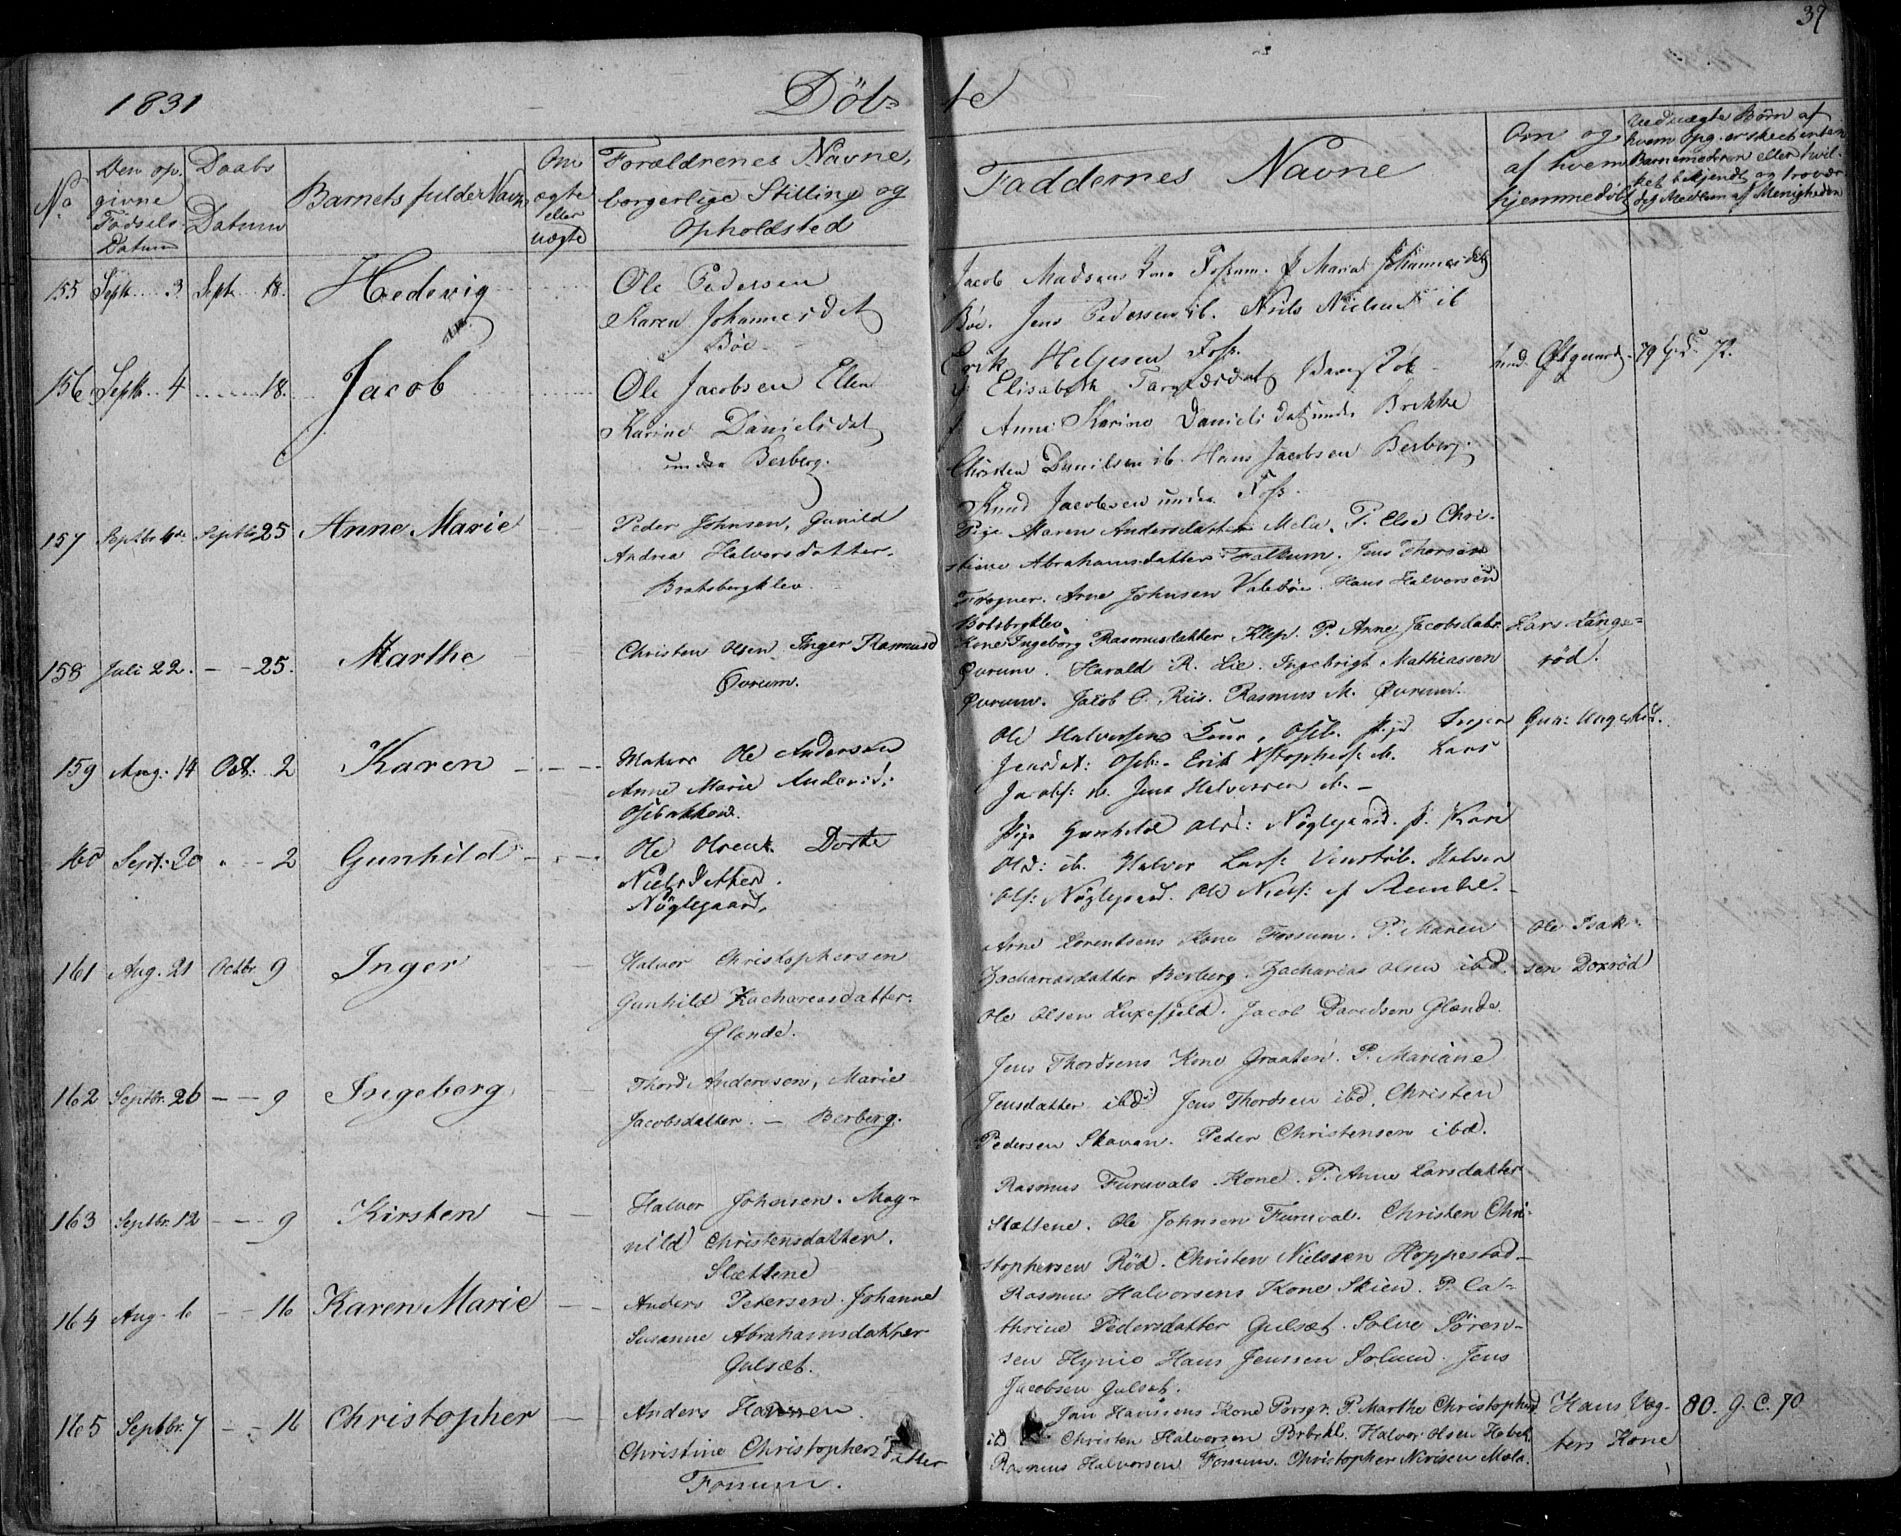 37
1831 Døb- te
No
Den op.
givne
Fødsels
Datum
Daabs
Datum
Barnets fulde Navn
Om
ægte
eller
uægte
Forældrenes Navne,
borgerlige Stilling og
Opholdsted
Faddernes Navne
Om og
af hvem
hjemmedøbt
Ved uægte Børn af
hvem Opg. er skeet enten
Barnemoderen eller hvil-
ket bekjendt og trovær-
dig Medlem af Menigheden
155 Septr 3 Septr 18. Hedevig
Ole Pedersen
Karen Johannesdat
Böe
Jacob Madsens Kone Fossum. P Maria Johannesdat
Böe. Jens Pedersen ib. Niels Nielsen ib
Erik Helgesen Foss.
156 Septr 4 18. Jacob
Ole Jacobsen Ellen
Karine Danielsdat
under Berberg.
P Elisabeth
P Anne Karine Danielsdat under Brekke
Christen Danielsen ib. Hans Jacobsen Berberg.
Knud Jacobsen under Foss.
79 72.
157 Septbr 25 Anne Marie
Peder Johnsen, Gunild
Andrea Halvorsdatter.
Bratsbergklev
Pige Maren Andersdatter Mela. P. Else Chri-
stiene Abrahamsdatter Falkum. Jens Thorsen
Frogner. Arne Johnsen Valeböe. Hans Halvorsen
Botsbrklev.
158 Juli 22. — 25. Marthe
Christen Olsen Inger Rasmusd
Övrum.
Kone Ingeborg Rasmusdatter Klep. P. Anne Jacobsdatr
Övrum. Harald R. Lie. Ingebrigt Mathiassen
Övrum. Jacob C. Riis. Rasmus M. Övrum.
Lars Lange-
röd.
159 Aug: 14 Oct: 2 Karen
Matros Ole Andersen
Anne Marie Andersd:
Osebakken.
Ole Halvorsens Kone, Oseb. Pige Inger
Jensdat: Oseb:- Erik Xstophers: ib. Lars
Jacobs: ib. Jens Halvorsen ib. —
160 Sept: 20 — 2 Gunhild
Ole Olsen. Dorte
Nielsdatter.
Nöglegaard.
Pige Gunhild Olsd: Nöglegaard. P. Kari
Olsd: ib. Halvor Lars: Venstöb. Halvor
Ols: Nöglegaard. Ole Niels:
161 Aug. 21 Octbr 9 Inger
Halvor Christophersen
Gunhild Zachariasdatter.
Glende.
Arne Lorentsens Kone Fossum. P. Maren
Zachariasdatter Berberg. Zacharias Olsen ibd.
Ole Olsen Luxefjeld. Jacob Davidsen Glende.
Ole Isak-
sen Doxröd
162 Septbr. 26 — — 9 Ingeborg
Thord Andersen, Marie
Jacobsdatter. — Berberg.
Jens Thordsens Kone Graaten. P. Mariane
Jensdatter ibd. Jens Thordsen ibd. Christen
Pedersen Skavan. Peder Christensen ibd.
163 Septbr. 12 — — 9 Kirsten
Halvor Johnsen. Mag-
nild Christensdatter.
Slættene
Rasmus Furuvals Kone. P. Anne Larsdatter
Slættene. Ole Johnsen Furuval. Christen Chri-
stophersen Röd. Christen Nielsen Hoppestad
164 Aug. 6 — — 16 Karen Marie
Anders Petersen. Johanne
Susanne Abrahamsdatter
Gulset.
Rasmus Halvorsens Kone Skien. P. Ca-
thrine Pedersdatter Gulset. Solve Sören-
sen Hynie Hans Jenssen Solum. Jens
Jacobsen Gulset.
165 Septbr. 7 — — 16 Christopher
Anders Hansen
Christine Christophersdatter
Fossum.
Jan Hanssens Kone Porsgr. P. Marthe Christophersd
Christen Halvorsen Brbrkl. Halvor Olsen
Rasmus Halvorsen Fossum. Christopher Mæla.
Hans Væg-
ters Kone
80. g. C. 70